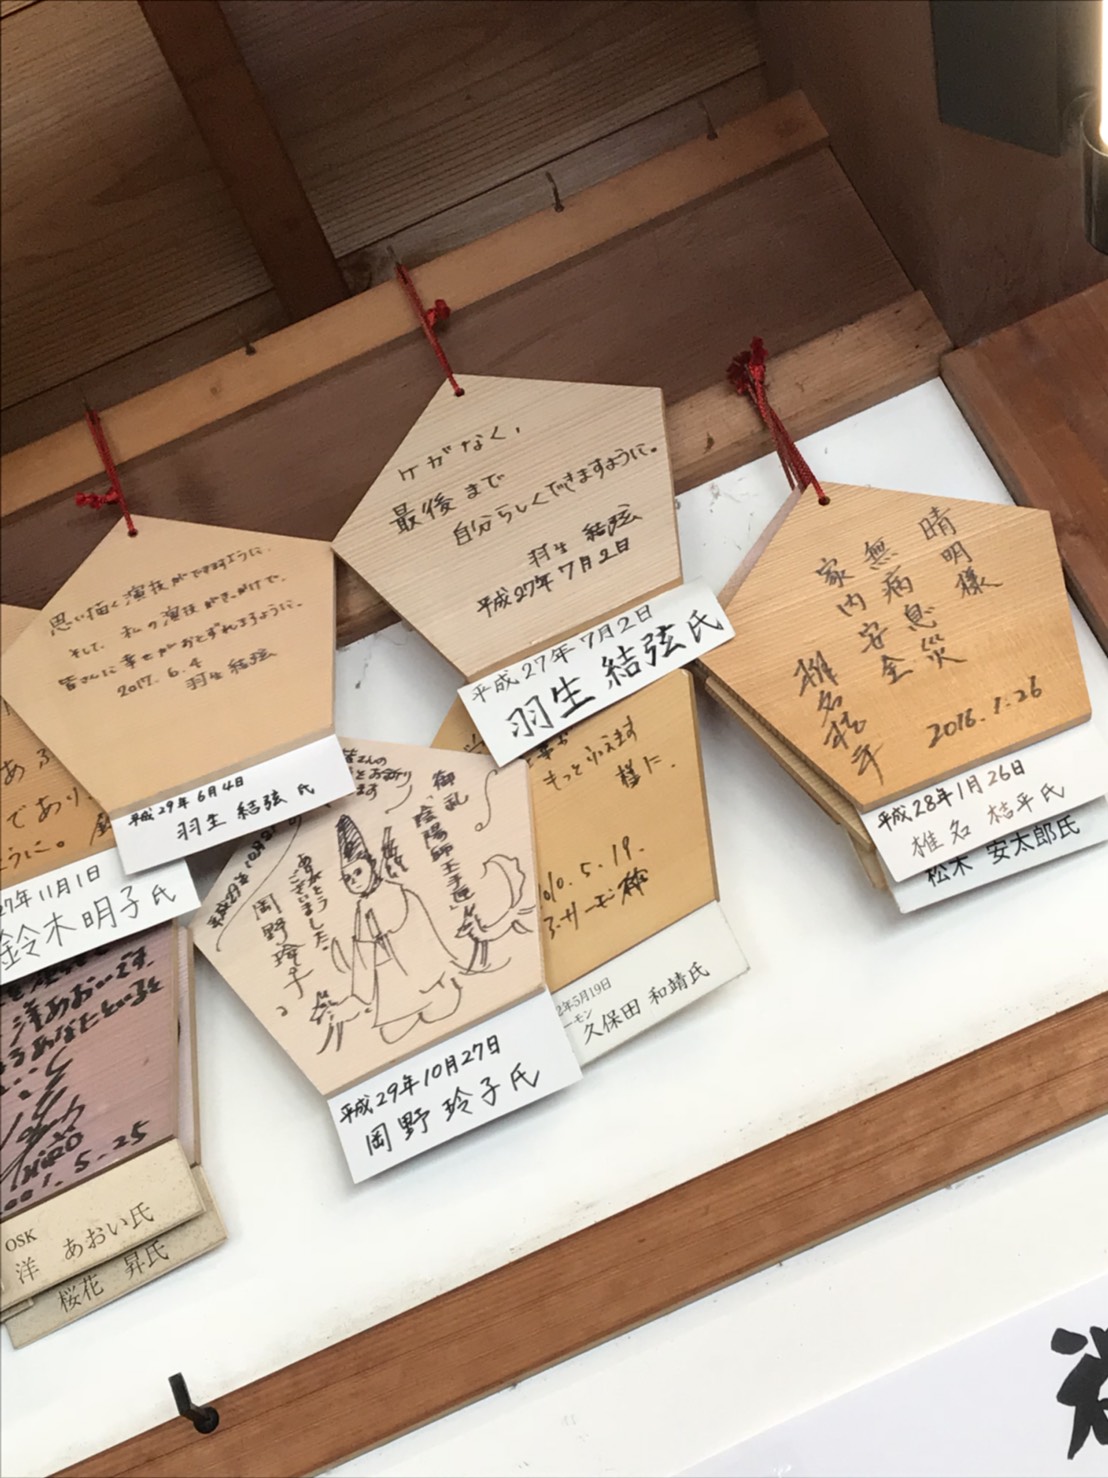 思い描く演技ができますように。
そして、私の演技がきっかけで、
皆さんに幸せがおとずれますように。
2017.6.4
羽生結弦
平成29年6月4日
羽生 結弦 氏
ケガなく、
最後まで
自分らしくできますように。
羽生 結弦
平成27年7月2日
平成27年7月2日
羽生 結弦 氏
晴明様
無病息災
家内安全
椎名桔平
2016.1.26
平成28年1月26日
椎名 桔平 氏
松木 安太郎氏
であり
うに。
27年11月1日
鈴木明子 氏
御礼
「陰陽師 玉手匣」
皆さんの
ありがとう
ございました。
岡野玲子
平成29年10月27日
岡野 玲子 氏
もっとふえます
様に.
010.5.19.
2年5月19日
ーモン
久保田 和靖氏
洋あおいです.
あなたといると
HIRO
001.5.25
OSK
洋 あおい氏
桜花 昇氏